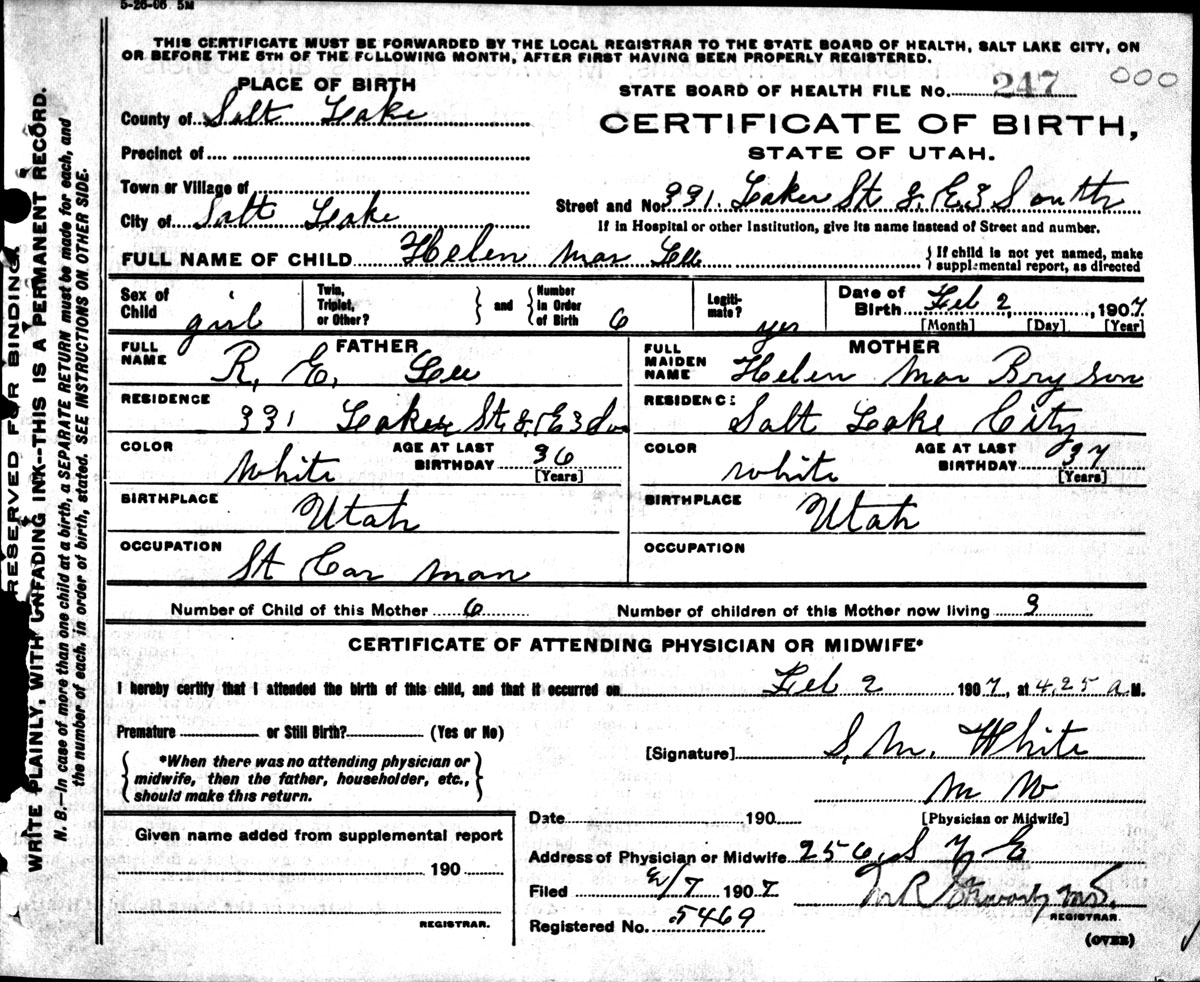 5-26-06 5M
THIS CERTIFICATE MUST BE FORWARDED BY THE LOCAL REGISTRAR TO THE STATE BOARD OF HEALTH, SALT LAKE CITY, ON
OR BEFORE THE 5TH OF THE FOLLOWING MONTH, AFTER FIRST HAVING BEEN PROPERLY REGISTERED.
PLACE OF BIRTH
County of Salt Lake
Precinct of
Town or Village of
City of Salt Lake
STATE BOARD OF HEALTH FILE NO. 247 000
CERTIFICATE OF BIRTH,
STATE OF UTAH.
Street and No. 331. St & E3 South
If in Hospital or other Institution, give its name instead of Street and number.
FULL NAME OF CHILD Helen Mar Lee
{ If child is not yet named, make supplemental report, as directed
Sex of Child girl
Twin, Triplet, or Other? } and { Number in Order of Birth 6
Legiti-mate? yes
Date of Birth Feb 2, 1907
[Month] [Day] [Year]
FATHER
FULL NAME R. E. Lee
RESIDENCE 331 St & E 3 So
COLOR White AGE AT LAST BIRTHDAY 36 [Years]
BIRTHPLACE Utah
OCCUPATION St Car man
MOTHER
FULL MAIDEN NAME Helen Mar Bryson
RESIDENCE Salt Lake City
COLOR white AGE AT LAST BIRTHDAY 37 [Years]
BIRTHPLACE Utah
OCCUPATION
Number of Child of this Mother 6 Number of children of this Mother now living
CERTIFICATE OF ATTENDING PHYSICIAN OR MIDWIFE*
I hereby certify that I attended the birth of this child, and that it occurred on Feb 2 1907, at 4.25 a M.
Premature or Still Birth? (Yes or No)
{ *When there was no attending physician or midwife, then the father, householder, etc., should make this return. }
[Signature] S. M. White
M W
[Physician or Midwife]
Date 190
Address of Physician or Midwife 256, S 7 E
Filed 2/7 1907
REGISTRAR.
Registered No. 5469
(OVER)
Given name added from supplemental report
190
REGISTRAR.
RESERVED FOR BINDING.
WRITE PLAINLY, WITH UNFADING INK--THIS IS A PERMANENT RECORD.
N. B.—In case of more than one child at a birth, a SEPARATE RETURN must be made for each, and
the number of each, in order of birth, stated. SEE INSTRUCTIONS ON OTHER SIDE.